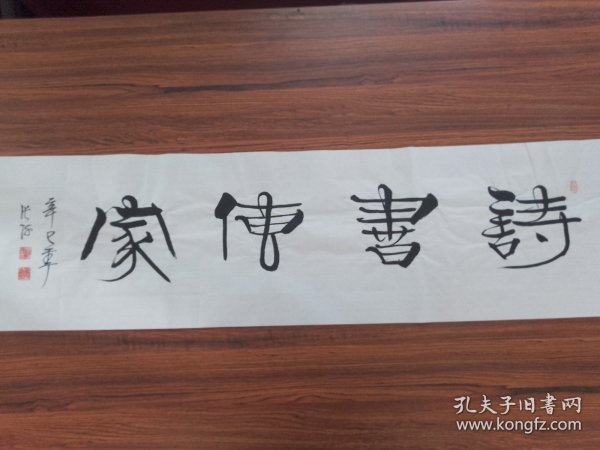 詩書傳家
辛巳年
孔夫子旧書网
www.kongfz.com